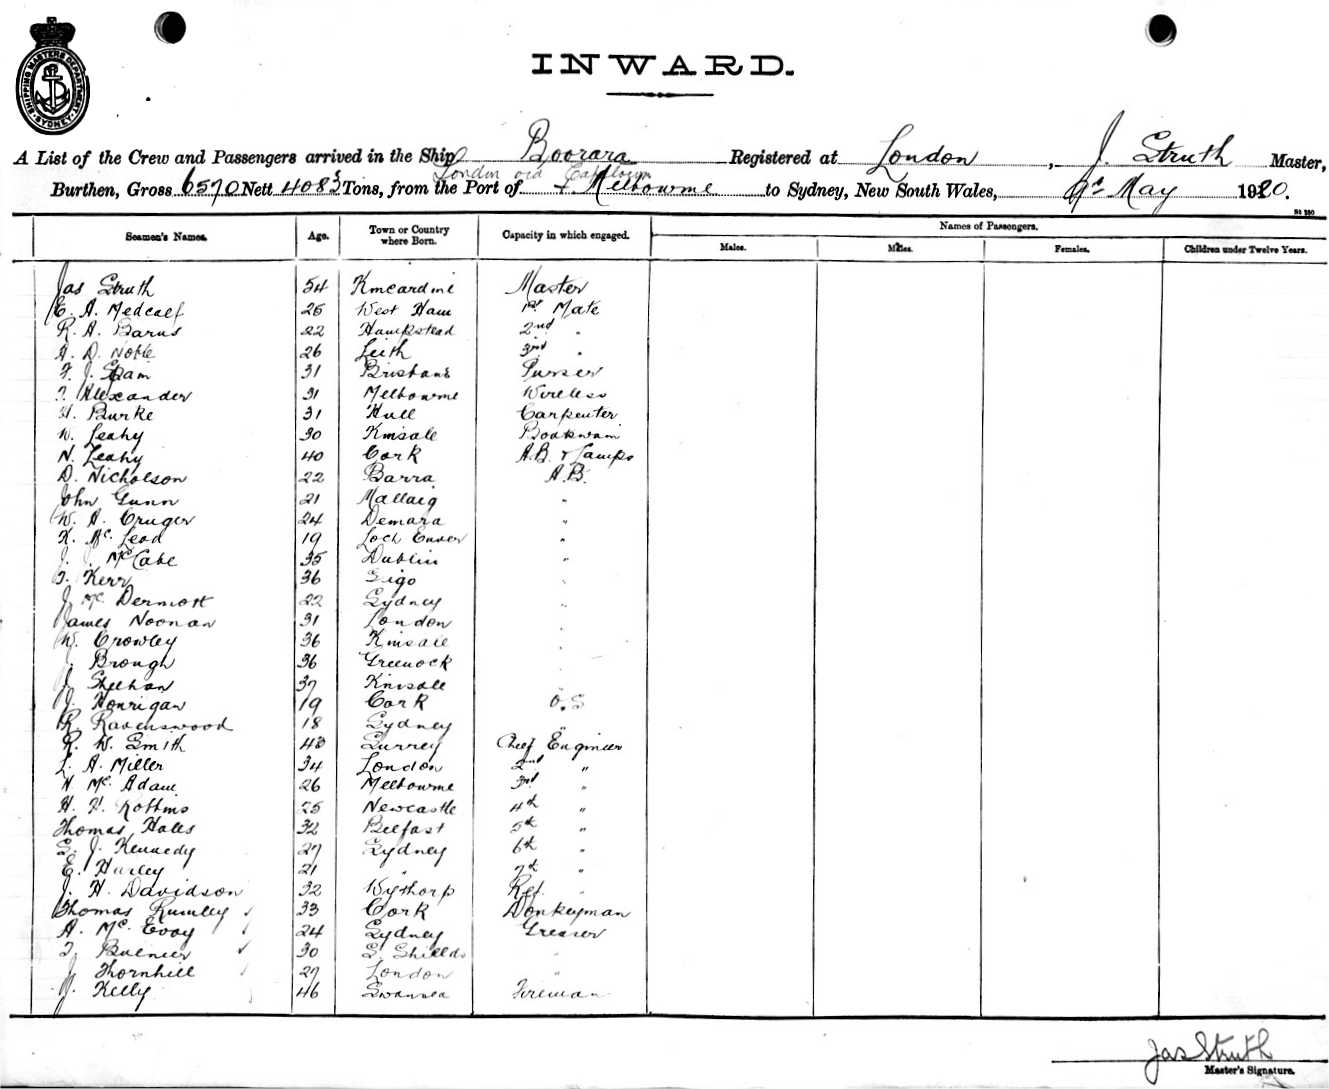 SHIPPING MASTERS DEPARTMENT SYDNEY
INWARD.
A List of the Crew and Passengers arrived in the Ship Boorara Registered at London, J. Struth Master,
London via Capetown
Burthen, Gross 6570 Nett 4083 Tons, from the Port of & Melbourne to Sydney, New South Wales, 9th May 1920.
Seamen's Names. Age. Town or Country where Born. Capacity in which engaged. Names of Passengers.
Males. Males. Females. Children under Twelve Years.
Jas Struth 54 Kincardine Master
E. A. Medcalf 25 West Ham 1st Mate
R. A. Barns 22 Hampstead 2nd "
A. D. Noble 26 Leith 3rd "
F. J. 31 Brisbane Purser
Alexander 31 Melbourne Wireless
Burke 31 Hull Carpenter
W. Leahy 30 Kinsale Boatswain
N. Leahy 40 Cork A.B. & Lamps
D. Nicholson 22 Barra A.B.
John Gunn 21 Mallaig "
W. A. Cruger 24 Demara "
K. Mc Leod 19 Loch "
J. J. McCabe 35 Dublin "
Kerr 36 "
J. Mc Dermott 22 Sydney "
James Noonan 31 London "
W. Crowley 36 Kinsale "
Brough 36 Greenock "
J. Sheehan 37 Kinsale "
J. Hourigan 19 Cork O.S
R. Ravenswood 18 Sydney "
R. W. Smith 43 Surrey Chief Engineer
L. A. Miller 34 London 2nd "
Mc Adam 26 Melbourne 3rd "
H. H. Robbins 25 Newcastle 4th "
Thomas Hales 32 Belfast 5th "
S. J. Kennedy 27 Sydney 6th "
E. Hurley 21 " 7th "
J. H. Davidson 32 Wythorp Ref. "
Thomas Rumley 33 Cork Donkeyman
A. Mc Evoy 24 Sydney Greaser
30 S. Shields "
J. Thornhill 27 London "
J. Kelly 46 Swansea Fireman
Jas Struth
Master's Signature.